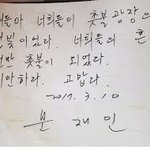 들아 너희들이 촛불 광장의
빛이었다. 너희들의 혼
천만 촛불이 되었다.
미안하다. 고맙다.
2017. 3. 10
문 재 인